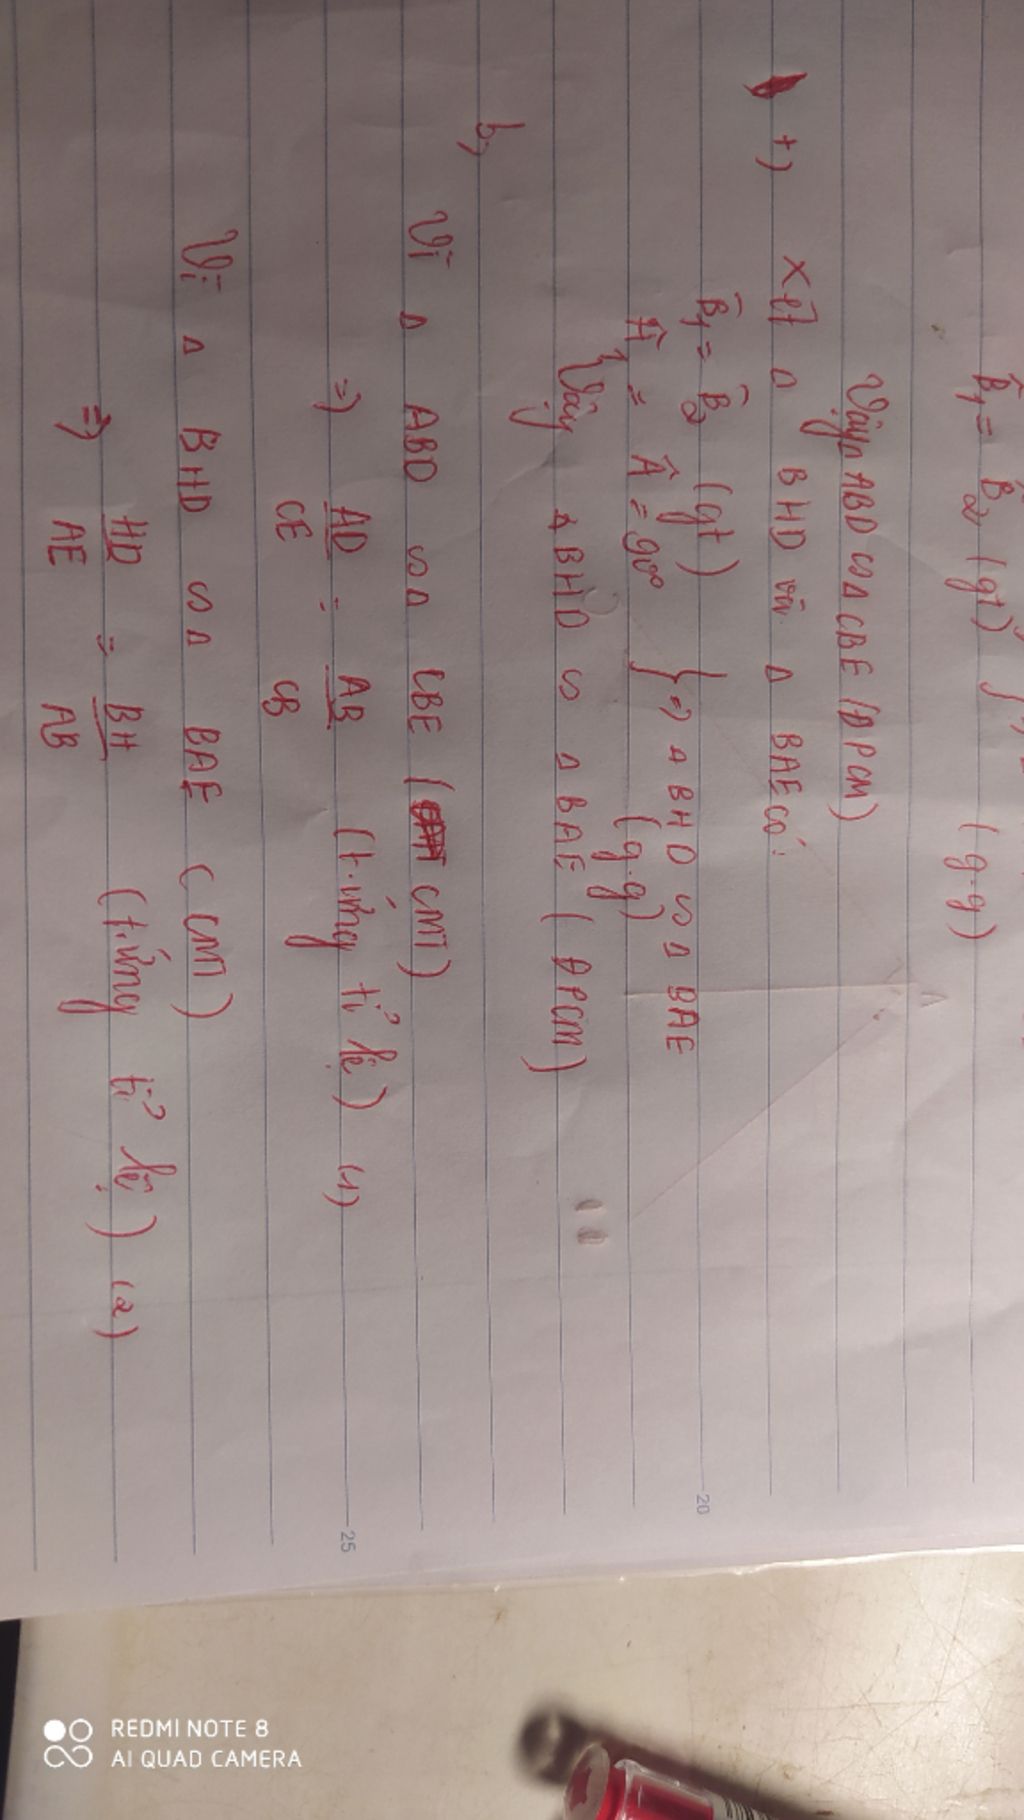 B̂₁ = B̂₂ (gt) } (g.g)
Vậy ΔABD ∽ Δ CBE (ĐPCM)
+) Xét Δ BHD và Δ BAE có:
B̂₁ = B̂₂ (gt) } => Δ BHD ∽ Δ BAE
Â₁ = Â = 90° (g.g)
Vậy Δ BHD ∽ Δ BAE (ĐPCM)
b,
Vì Δ ABD ∽ Δ CBE (CMT)
=> AD/CE = AB/CB (t.ứng tỉ lệ) (1)
Vì Δ BHD ∽ Δ BAE (CMT)
=> HD/AE = BH/AB (t.ứng tỉ lệ) (2)
20
25
REDMI NOTE 8
AI QUAD CAMERA